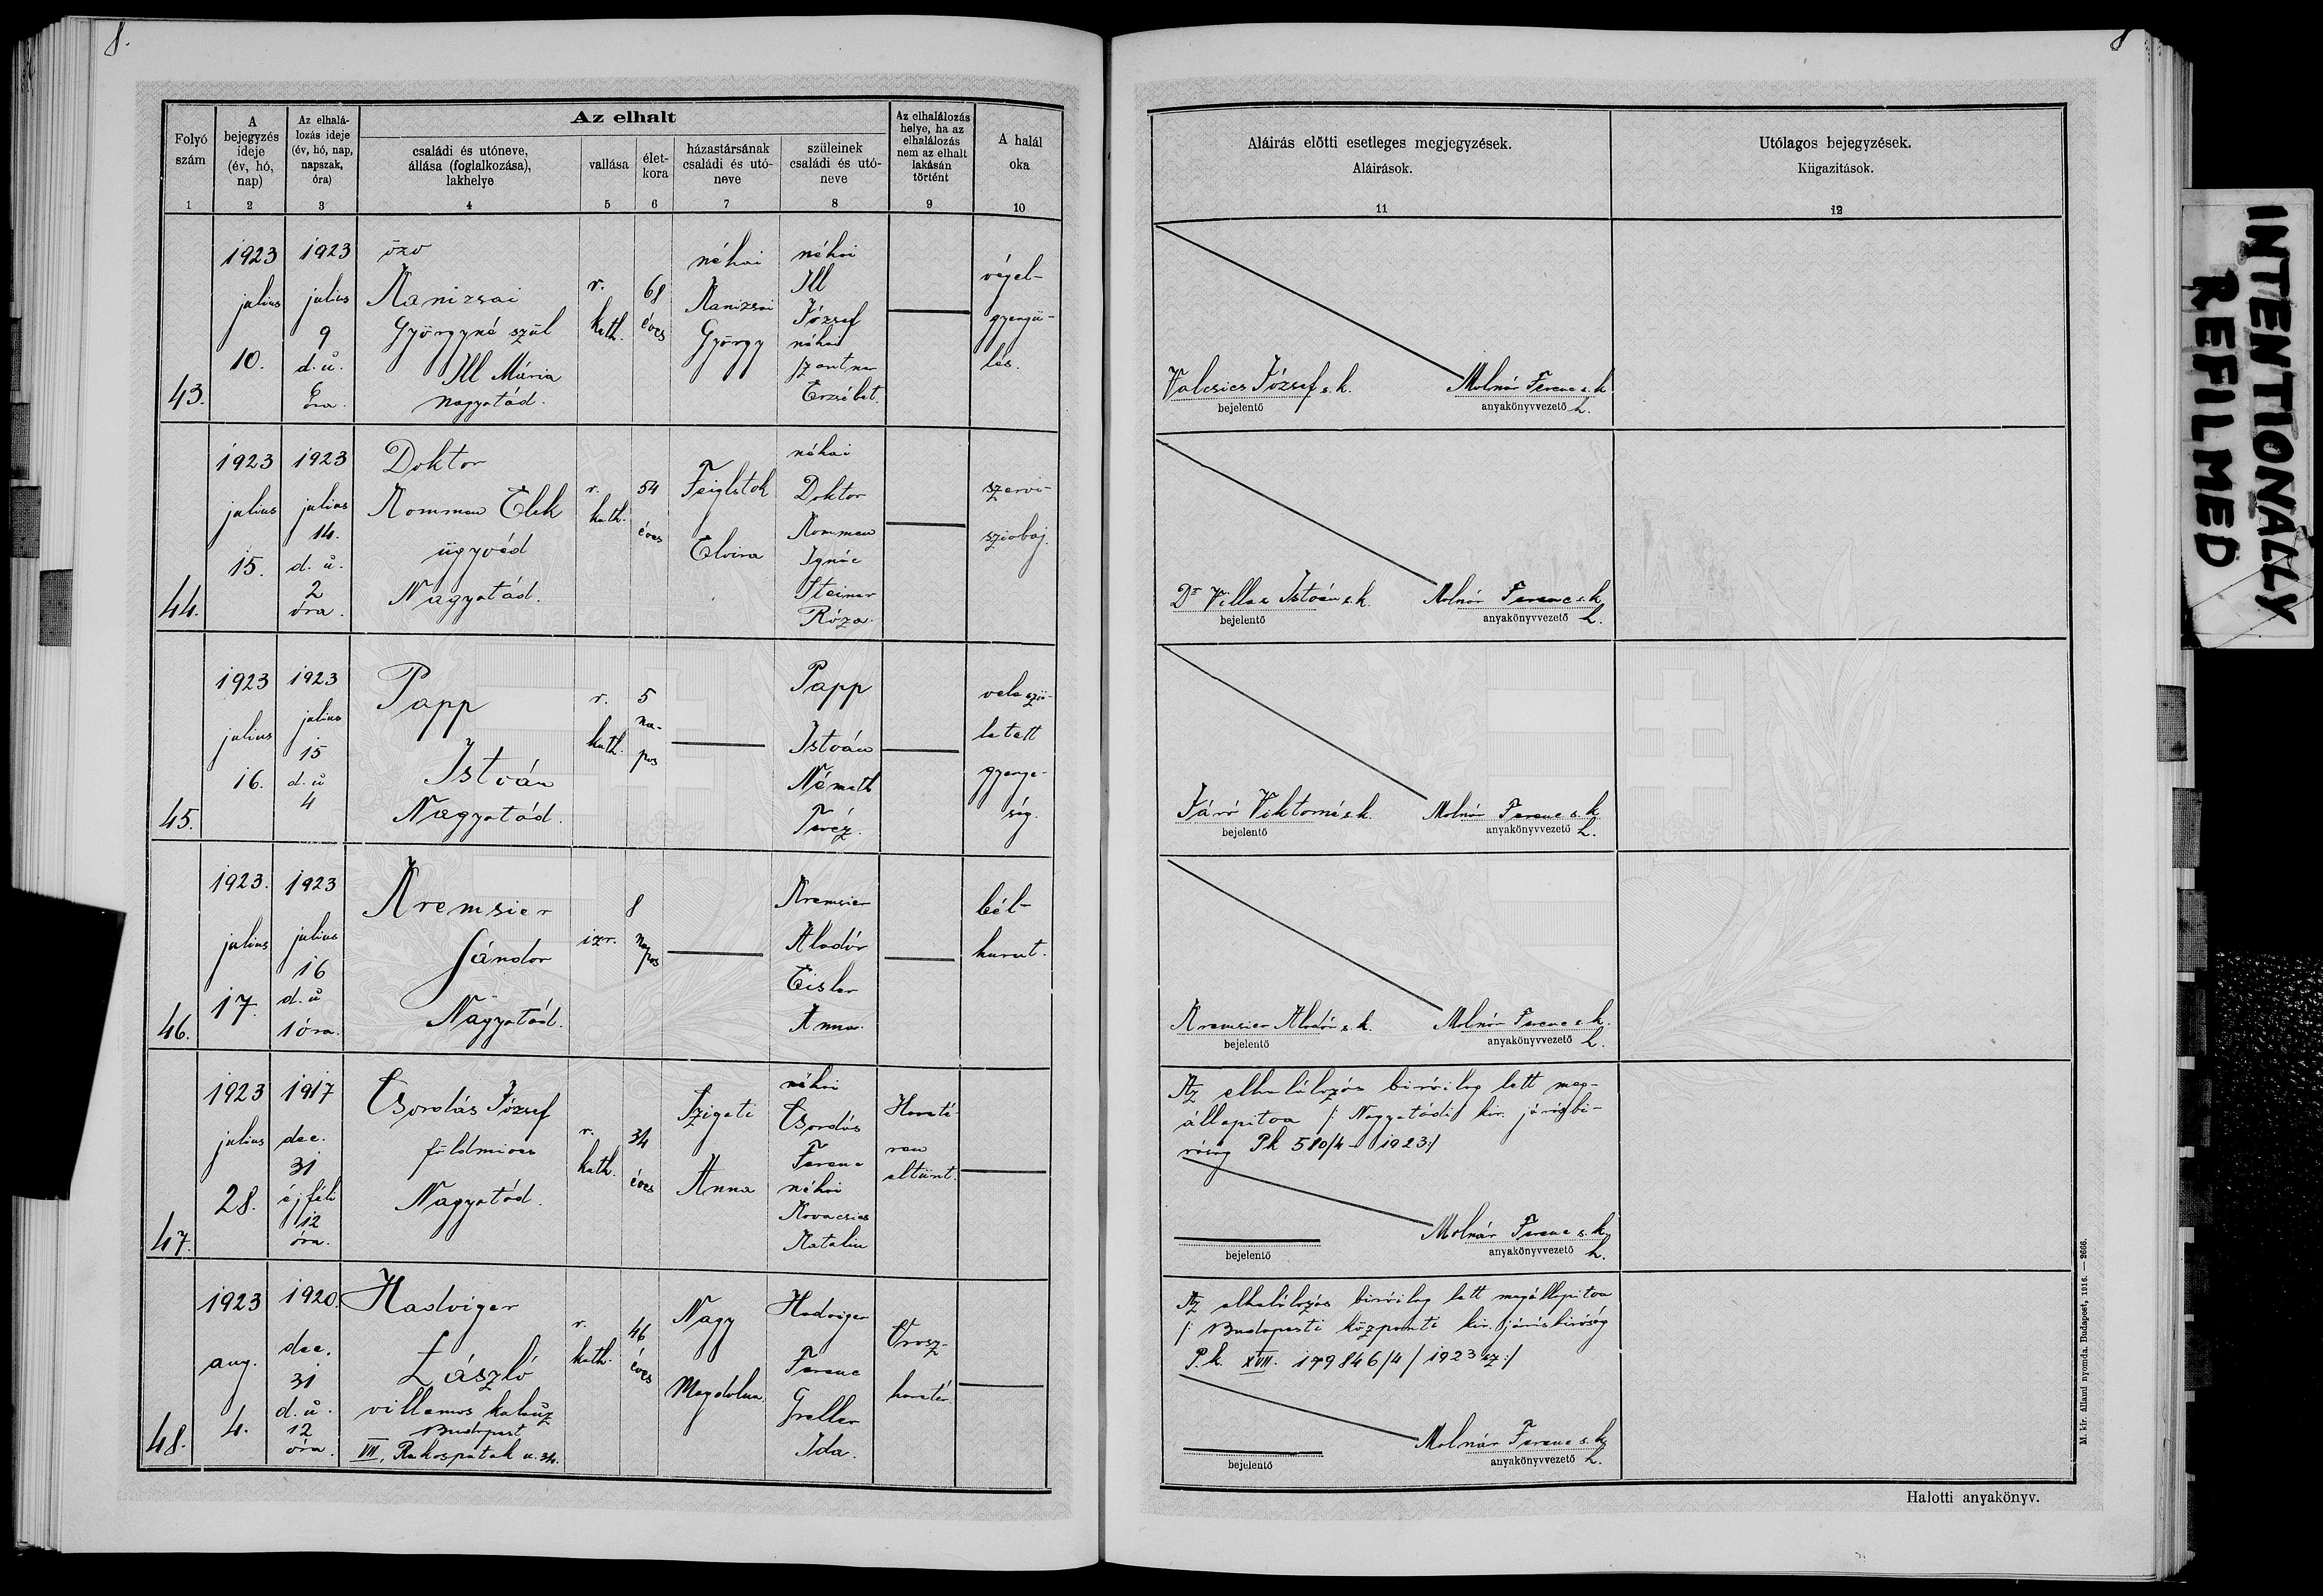 8.
8
Az elhalt
Folyó
szám
A
bejegyzés
ideje
(év, hó,
nap)
Az elhalá-
lozás ideje
(év, hó, nap,
napszak,
óra)
családi és utóneve,
állása (foglalkozása),
lakhelye
vallása
élet-
kora
házastársának
családi és utó-
neve
szüleinek
családi és utó-
neve
Az elhalálozás
helye, ha az
elhalálozás
nem az elhalt
lakásán
történt
A halál
oka
1 2 3 4 5 6 7 8 9 10
Aláírás előtti esetleges megjegyzések.
Aláírások.
11
Utólagos bejegyzések.
Kiigazítások.
12
43.
1923
julius
10.
1923
julius
9
d. u.
6
óra.
özv
Kanizsai
Györgyné szül
Ill Mária
Nagyatád.
r.
kath.
68
éves
néhai
Kanizsai
György
néhai
Ill
József
néhai
Erzsébet.
végel-
gyengü-
lés.
Valcsics József s. k.
bejelentő
Molnár Ferenc s. k.
anyakönyvvezető h.
44.
1923
julius
15.
1923
julius
14.
d. u.
2
óra.
Doktor
Elek
ügyvéd
Nagyatád.
r.
kath.
54
éves
Elvira
néhai
Doktor
Ignác
Steiner
Róza.
szervi-
szivbaj.
Dr István s. k.
bejelentő
Molnár Ferenc s. k.
anyakönyvvezető h.
45.
1923
julius
16.
1923
julius
15
d. u
4
Papp
István
Nagyatád.
r.
kath.
5
na-
pos
Papp
István
Németh
Teréz.
vele szü-
letett
gyenge-
ség.
Járó Viktorné s. k.
bejelentő
Molnár Ferenc s. k.
anyakönyvvezető h.
46.
1923.
julius
17.
1923
julius
16
d. u
1 óra.
Kremsier
Sándor
Nagyatád.
izr.
8
na
pos
Kremsier
Aladár
Eisler
Anna.
bél-
hurut.
Kremsier Aladár s. k.
bejelentő
Molnár Ferenc s. k.
anyakönyvvezető h.
47.
1923
julius
28.
1917
dec.
31
éjféli
12
óra.
Csordás József
földmives
Nagyatád.
r.
kath.
34
éves
Szigeti
Anna
néhai
Csordás
Ferenc
néhai
Kovacsics
Katalin
Harcté-
ren
eltünt.
Az elhalálozás biróilag lett meg-
állapitva /: Nagyatádi kir. járásbi-
róság Pk 580/4 - 1923:/
bejelentő
Molnár Ferenc s. k.
anyakönyvvezető h.
48.
1923
aug.
4.
1920.
dec.
31
d. u.
12
óra.
Hadviger
László
villamos kalauz
Budapest
VII, Rakospatak u. 34.
r.
kath.
46
éves
Nagy
Magdolna
Hadviger
Ferenc
Greller
Ida.
Orosz-
harctér
Az elhalálozás biróilag lett megállapitva
/: Budapesti központi kir. járásbiróság
P. k. XVII. 179846/4/1923 sz:/
bejelentő
Molnár Ferenc s. k.
anyakönyvvezető h.
M. kir. állami nyomda. Budapest, 1916. — 2666.
Halotti anyakönyv.
INTENTIONALLY
REFILMED